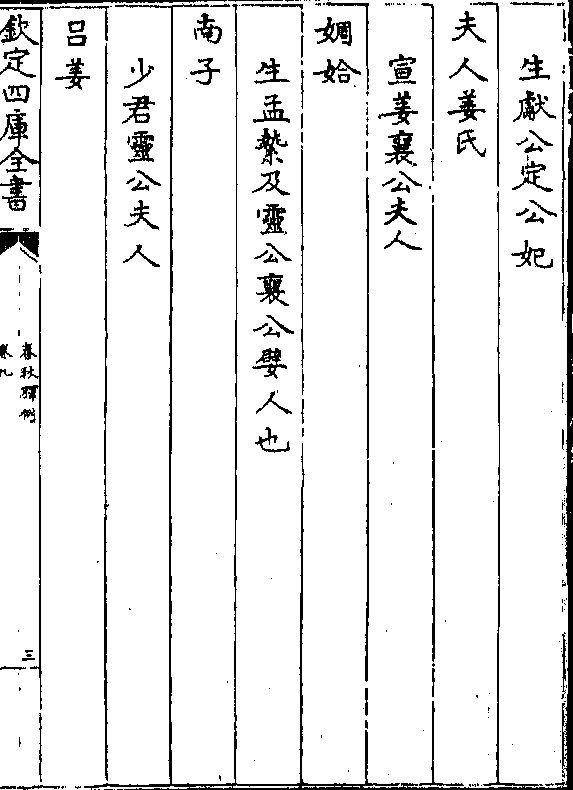 生獻公定公妃
夫人姜氏
宣姜襄公夫人
婤姶
生孟縶及靈公襄公嬖人也
南子
少君靈公夫人
呂姜
欽定四庫全書
春秋釋例
卷九
三